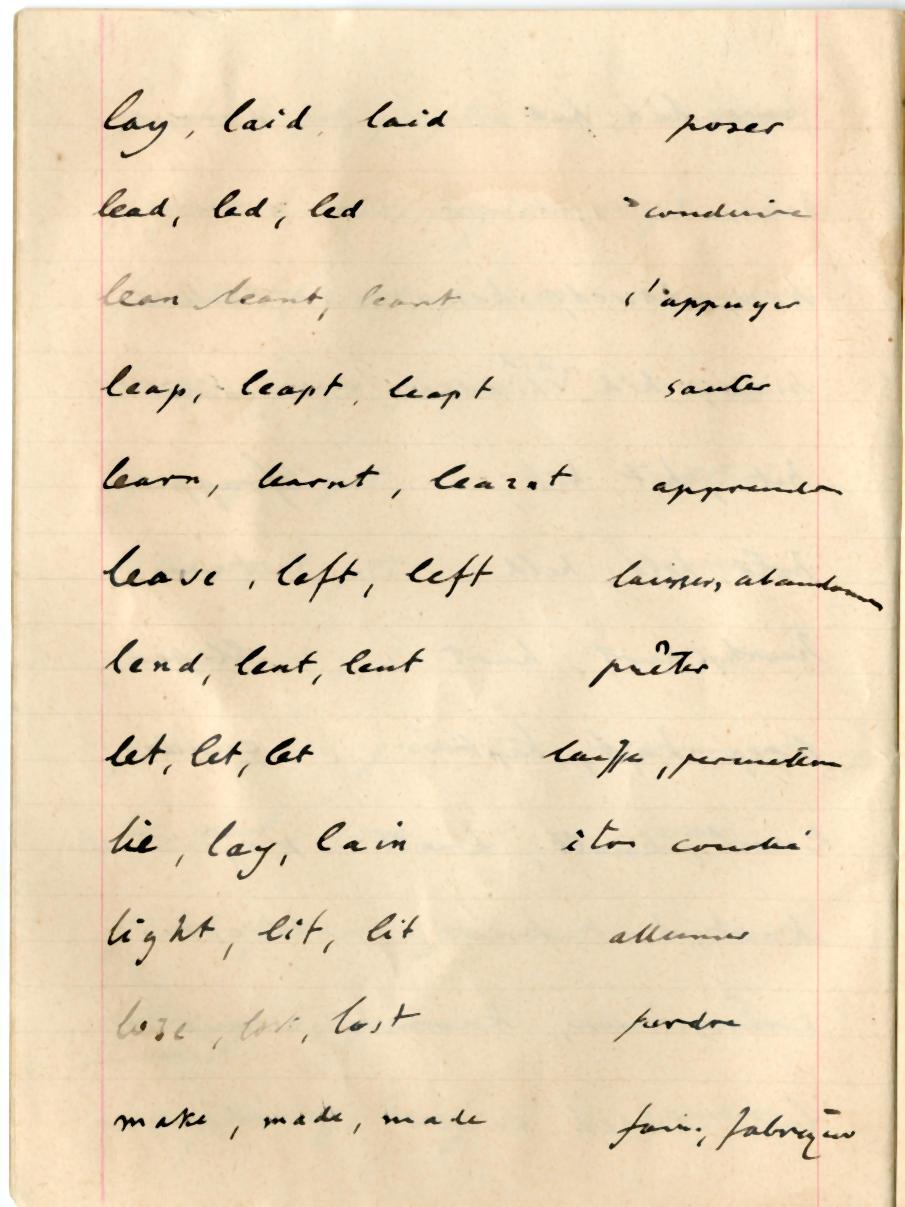 lay, laid, laid poser
lead, led, led conduire
lean leant, leant s'appuyer
leap, leapt, leapt sauter
learn, learnt, learnt apprendre
leave, left, left laisser, abandonner
lend, lent, lent prêter
let, let, let laisser, permettre
lie, lay, lain être couché
light, lit, lit allumer
lose, lost, lost perdre
make, made, made faire, fabriquer